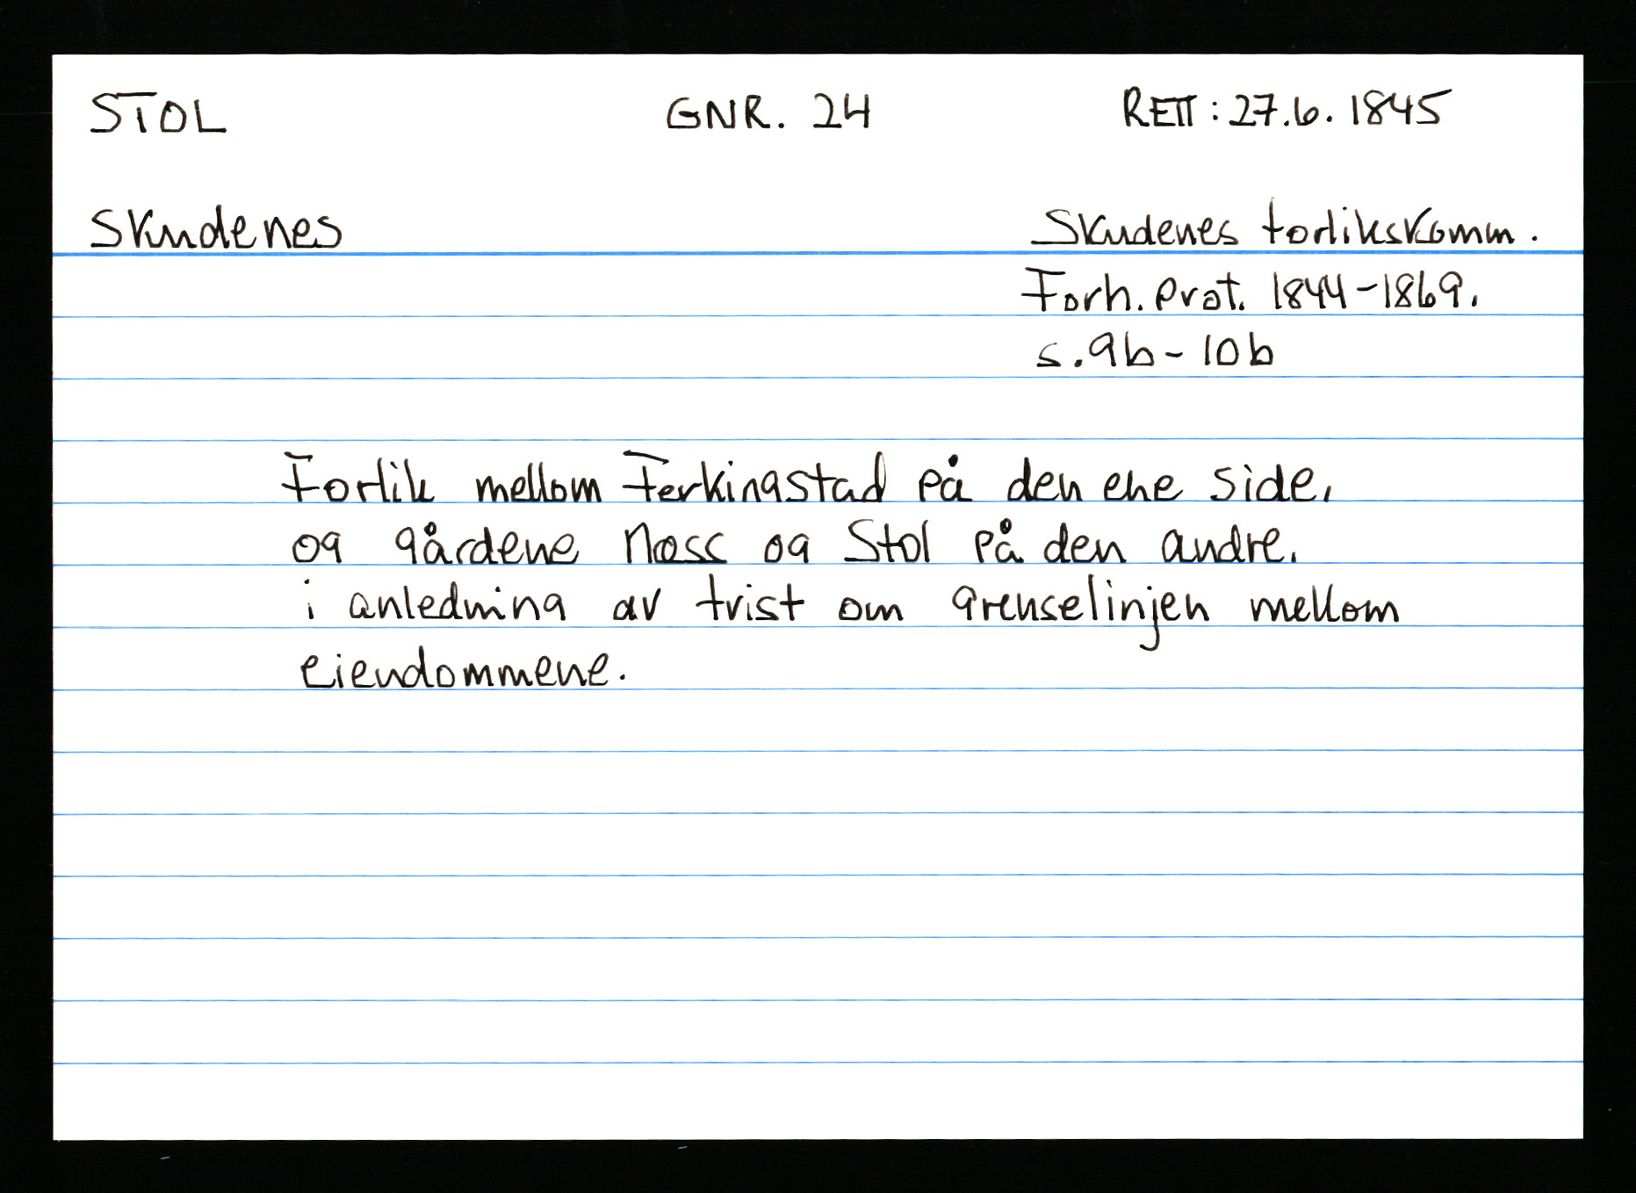 STOL GNR. 24 RETT: 27.6. 1845
Skudenes Skudenes forlikskomm.
Forh. prot. 1844-1869.
s. 9b - 10b
Forlik mellom Ferkingstad på den ene side,
og gårdene Næss og Stol på den andre.
i anledning av tvist om grenselinjen mellom
eiendommene.